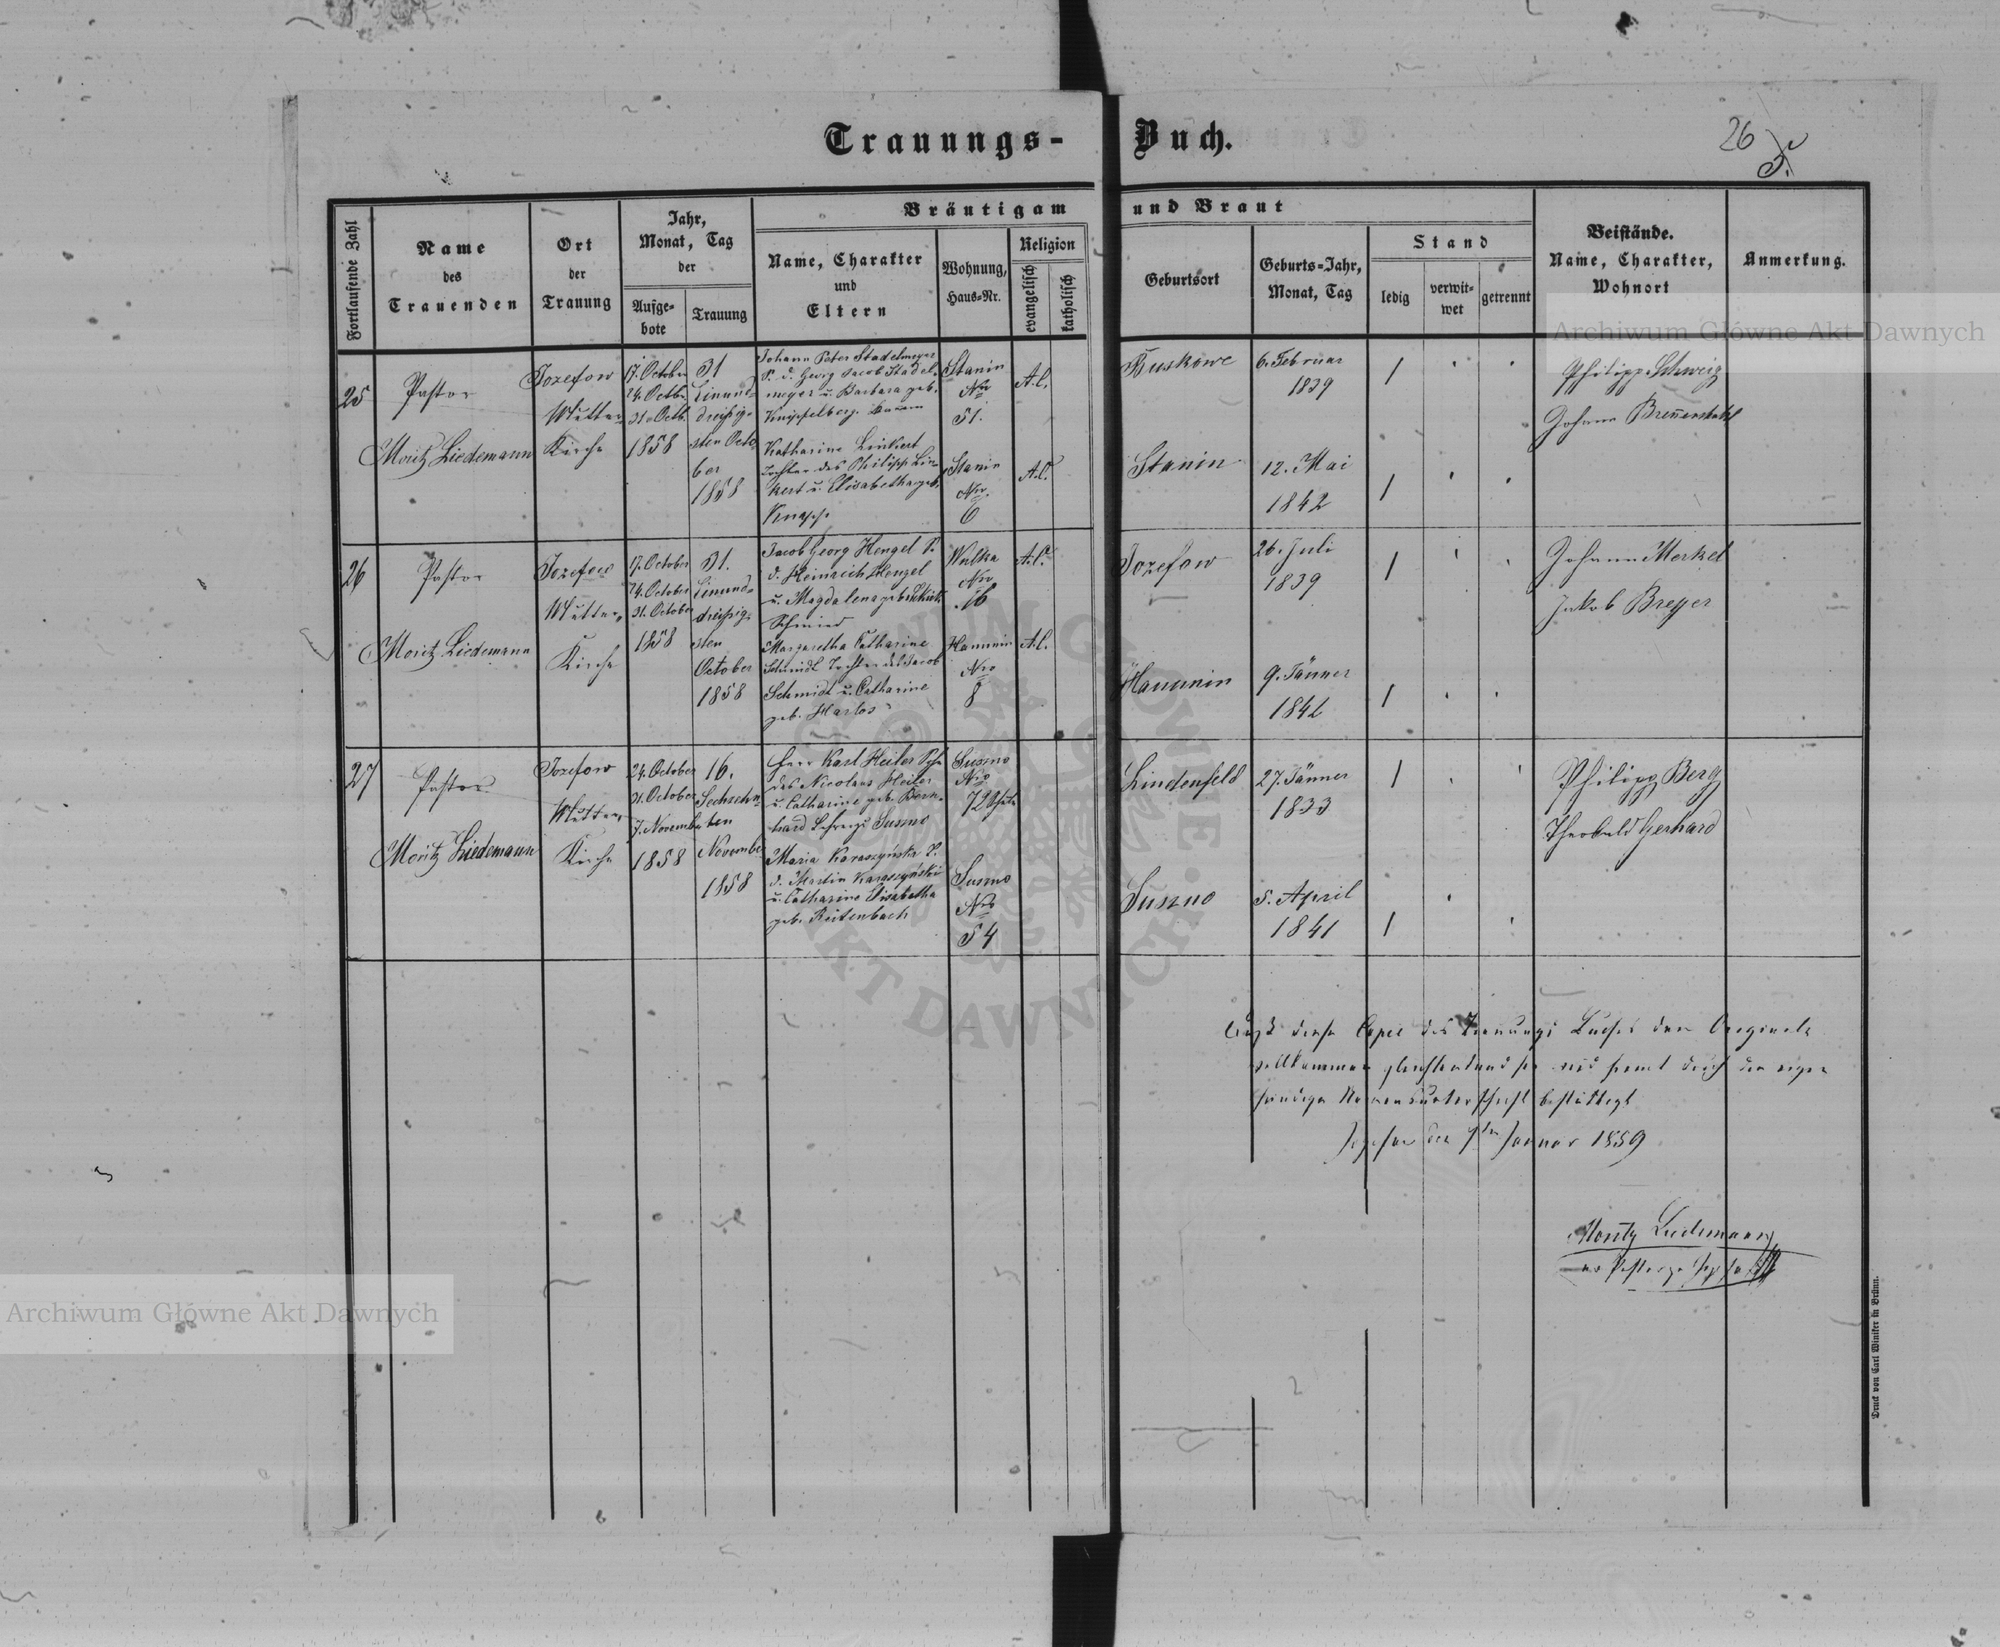 Trauungs-Buch.
26
Fortlaufende Zahl
Name
des
Trauenden
Ort
der
Trauung
Jahr,
Monat, Tag
der
Aufge-
bote
Trauung
Bräutigam und Braut
Name, Charakter
und
Eltern
Wohnung,
Haus-Nr.
Religion
evangelisch
katholisch
Geburtsort
Geburts-Jahr,
Monat, Tag
Stand
ledig
verwit-
wet
getrennt
Beistände.
Name, Charakter,
Wohnort
Anmerkung.
25
Pastor
Moritz Liedemann
Jozefow
Mutter-
Kirche
17. October
24. Octbr.
31. Octb.
1858
31
Einund-
dreißig-
sten Octo
ber
1858
Johann Peter Stadelmeyer
S. d. Georg Jacob Stadel-
meyer u. Barbara geb.
Knipfelberg
Stanin
Nro
51.
A.C.
Katharine Linkert
Tochter des Philipp Lin-
kert u. Elisabetha geb.
Stanin
Nro.
6
A.C.
6. Februar
1839
Stanin
12. Mai
1842
Philipp Schweig
Johann
26
Pastor
Moritz Liedemann
Jozefow
Mutter-
Kirche
17. October
24. October
31. October
1858
31.
Einund-
dreißig-
sten
October
1858
Jacob Georg Hengel S.
d. Heinrich Hengel
u. Magdalena geb.
Schmied
Wulka
Nro
16
A.C.
Margaretha Catharine
Schmidt Tochter des Jacob
Schmidt u. Catharine
geb. Harlos
Hanunin
Nro
8
A.C.
Jozefow
26. Juli
1839
Hanunin
9. Jänner
1841
Johann Merkel
Jakob Breyer
27
Pastor
Moritz Liedemann
Jozefow
Mutter-
Kirche
24. October
31. October
7. November
1858
16.
Sechzehn-
ten
November
1858
Herr Karl Heiler Sohn
des Nicolaus Heiler
u. Catharine geb. Bern-
hard Lehrer zu Suszno
Suszno
Nro
72
Maria Karaszyńska T.
d. Martin Karaszyński
u. Catharine Elisabetha
geb. Reitenbach
Suszno
Nro
54
Lindenfeld
27. Jänner
1833
Suszno
5. April
1841
Philipp Berg
Theobald Gerhard
Daß diese Copie des Trauungs Buches dem Originale
vollkommen gleichlautend sei wird somit durch die eigen
händige Namensunterschrift bestättigt
Jozefow den Januar 1859
Moritz Liedemann
Druck von Carl Winiker in Brünn.
Archiwum Główne Akt Dawnych
Archiwum Główne Akt Dawnych
ARCHIWUM GŁÓWNE AKT DAWNYCH